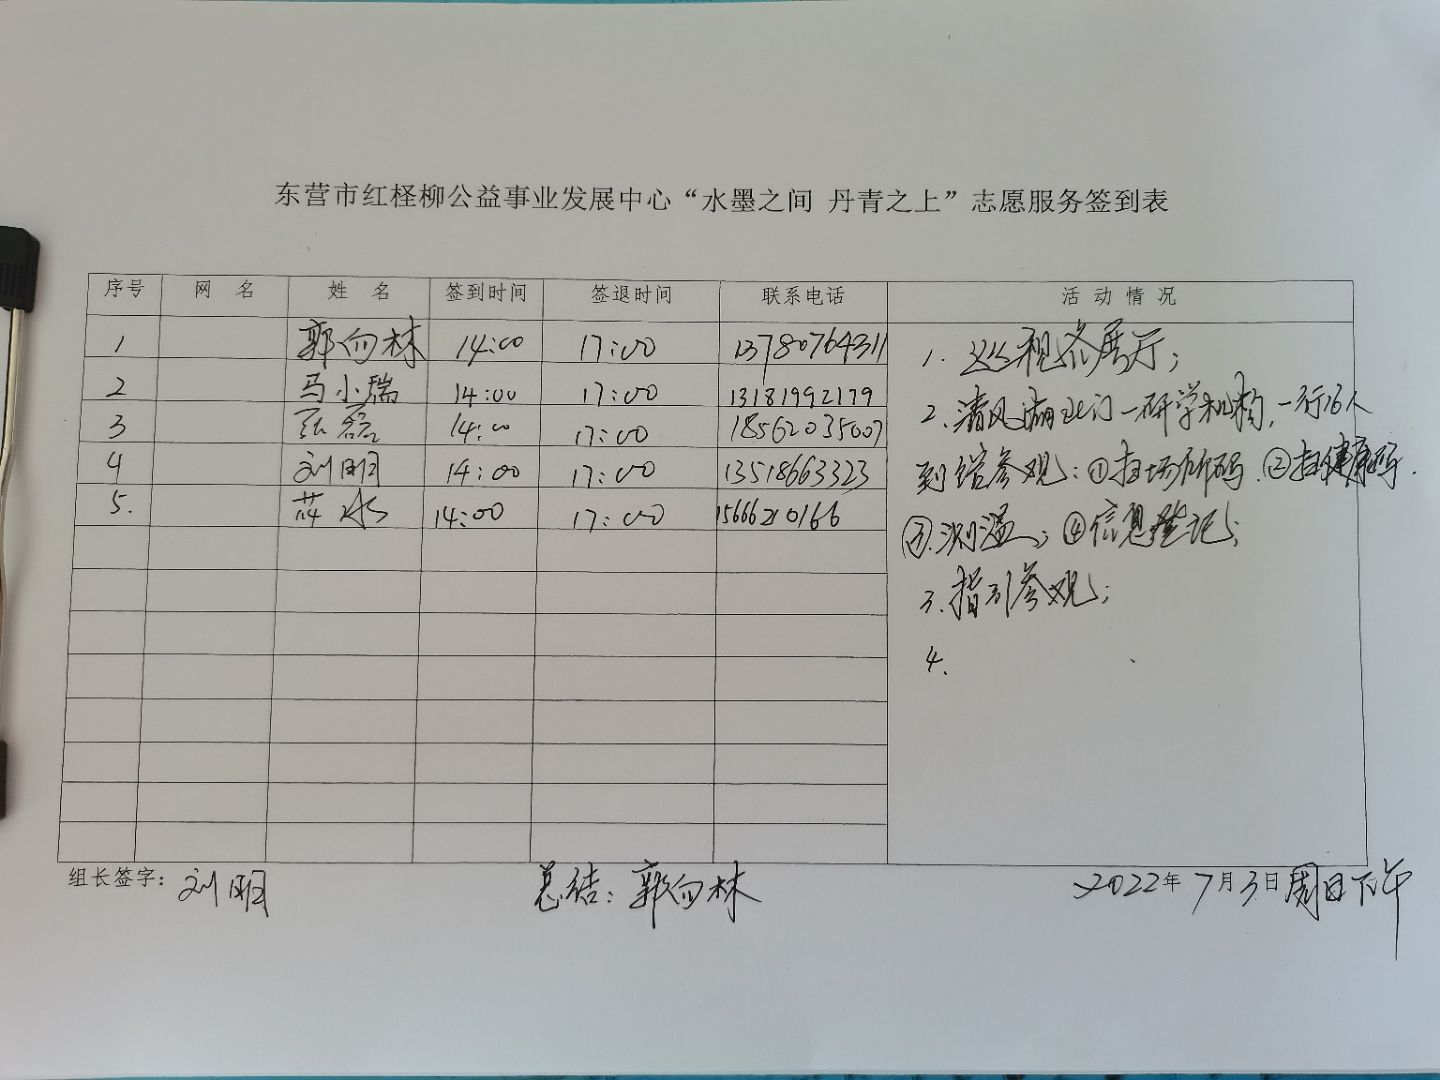 东营市红柽柳公益事业发展中心“水墨之间 丹青之上”志愿服务签到表
序号 网 名 姓 名 签到时间 签退时间 联系电话 活 动 情 况
1 郭向林 14:00 17:00 13780764311
2 马小瑞 14:00 17:00 13181992179
3 张磊 14:00 17:00 18562035007
4 刘明 14:00 17:00 13518663323
5. 14:00 17:00 15666210166
1. 巡视展厅;
2. 清风湖北门一研学机构,一行16人
到馆参观:①扫场所码.②扫健康码.
③.测温;④信息登记;
3.指引参观;
4.
组长签字: 刘明 总结:郭向林 2022年7月3日周日下午